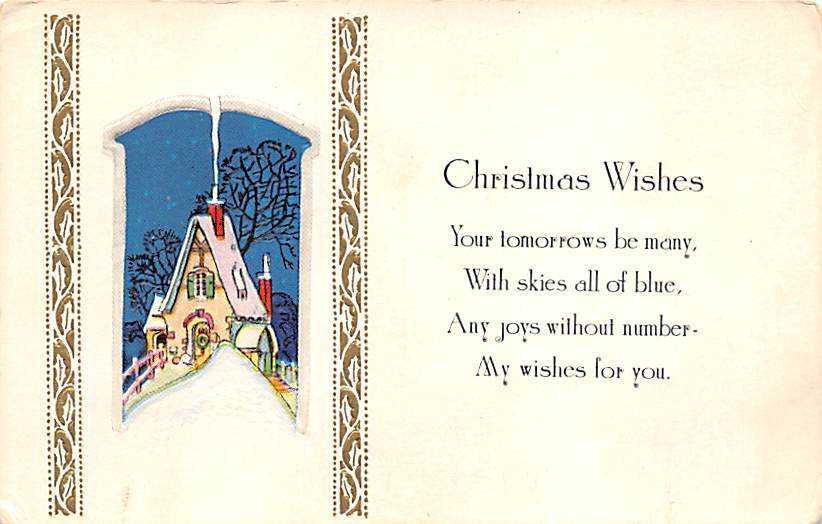 Christmas Wishes
Your tomorrows be many,
With skies all of blue,
Any joys without number-
My wishes for you.